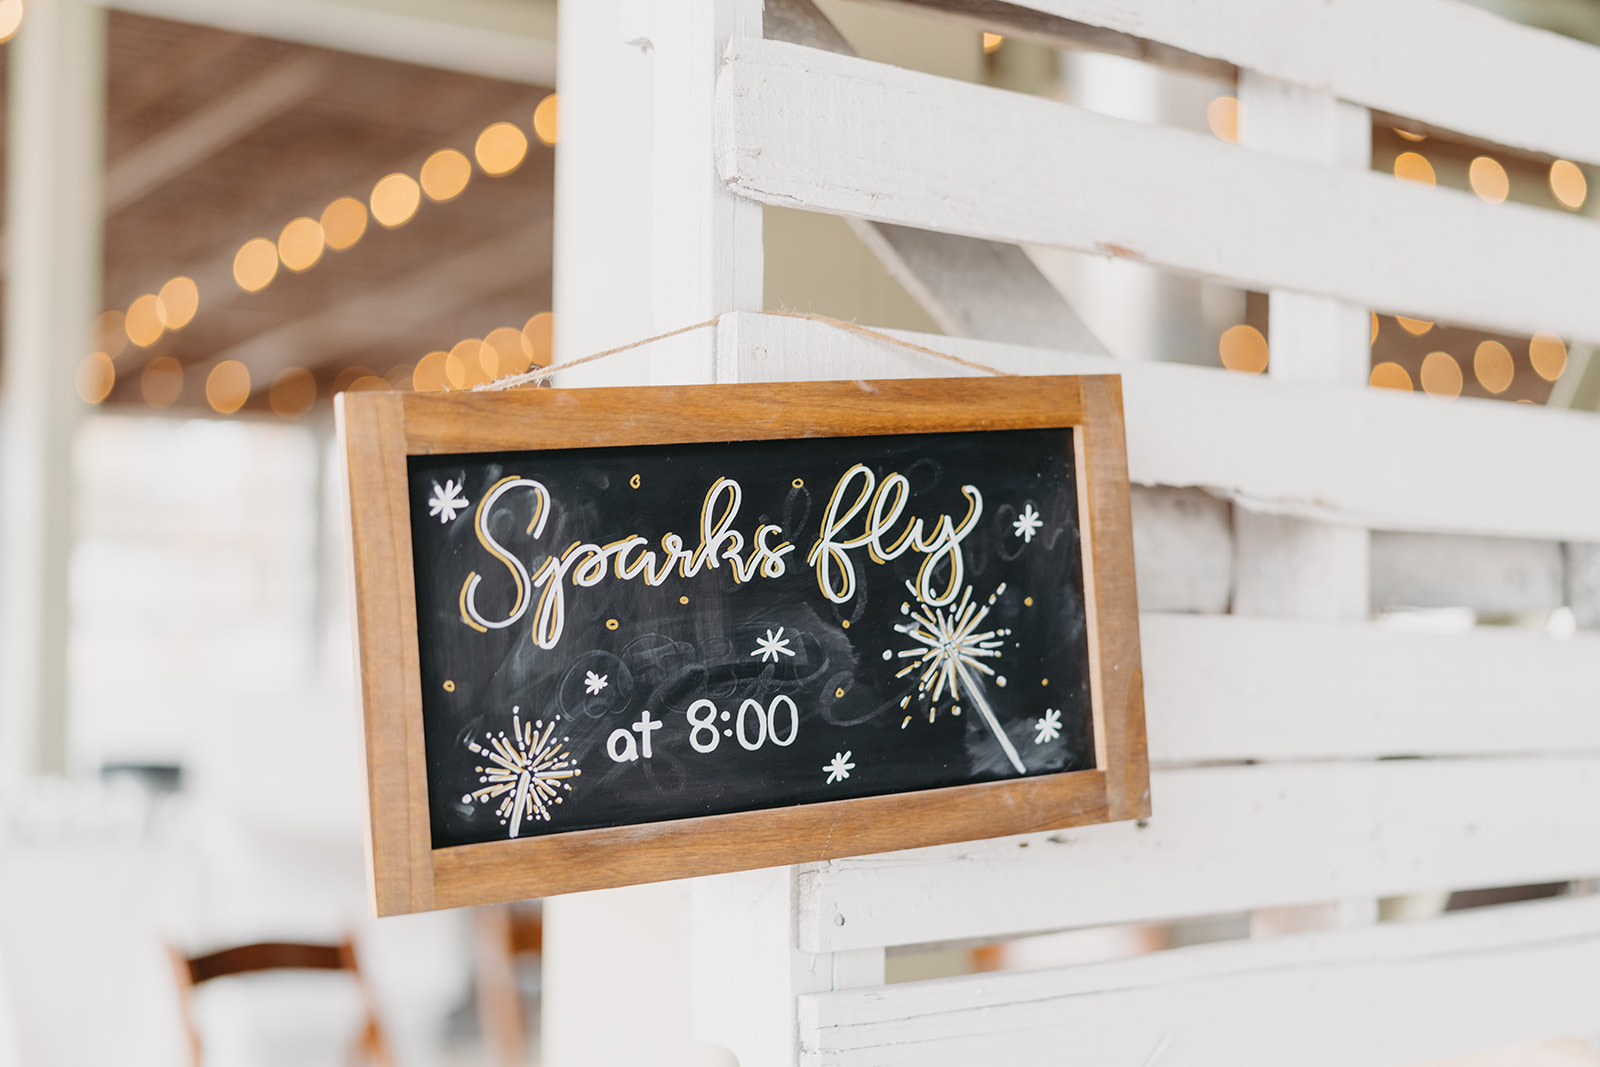 Sparks fly
at 8:00